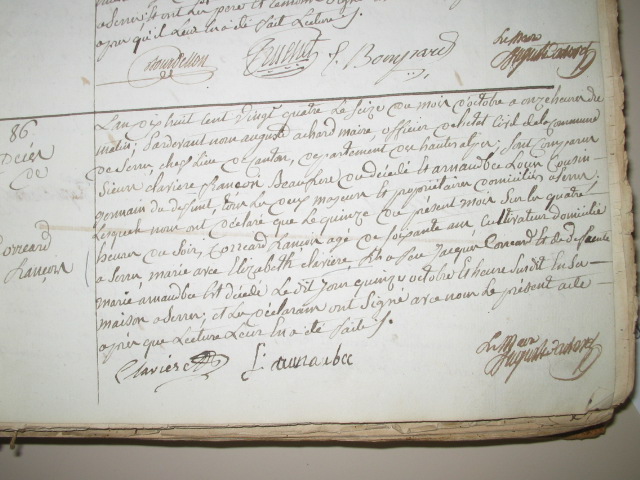 après qu'il leur en a été fait Lecture
Bompard
Le maire
86
Décès
de
Correard
François
L'an dix huit cent vingt quatre Le Seize du mois d'octobre a onze heures du
matin; Pardevant nous auguste achard maire, officier de l'état Civil de la Commune
de Serres, chef Lieu de Canton, département du hautes alpes; Sont Comparus
Sieurs clavière françois Beaufrère du décédé et arnaud bce Louis Cousin
germain du deffunt, tous Les deux majeurs et propriétaires domiciliés a Serres;
Lesquels nous ont déclaré que Le quinze du présent mois Sur Les quatre
heures du Soir, Correard françois agé de Soixante ans, Cultivateur domicilié
a Serres, marié avec Elizabeth clavière, fils a feu Jacques Correard Et de deffunte
marie arnaud bce Est décédé Le dit Jour quinze octobre Et heure Susdit En Sa
maison a Serres; et Les déclarans ont Signé avec nous Le présent acte
après que Lecture Leur En a été faite
Clavière
L. arnaud bce
Le Maire